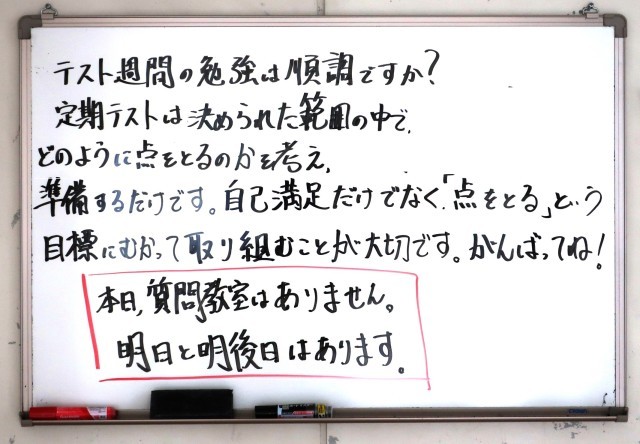 テスト週間の勉強は順調ですか？
定期テストは決められた範囲の中で、
どのように点をとるのかを考え、
準備するだけです。自己満足だけでなく、「点をとる」という
目標にむかって取り組むことが大切です。がんばってね！
本日、質問教室はありません。
明日と明後日はあります。